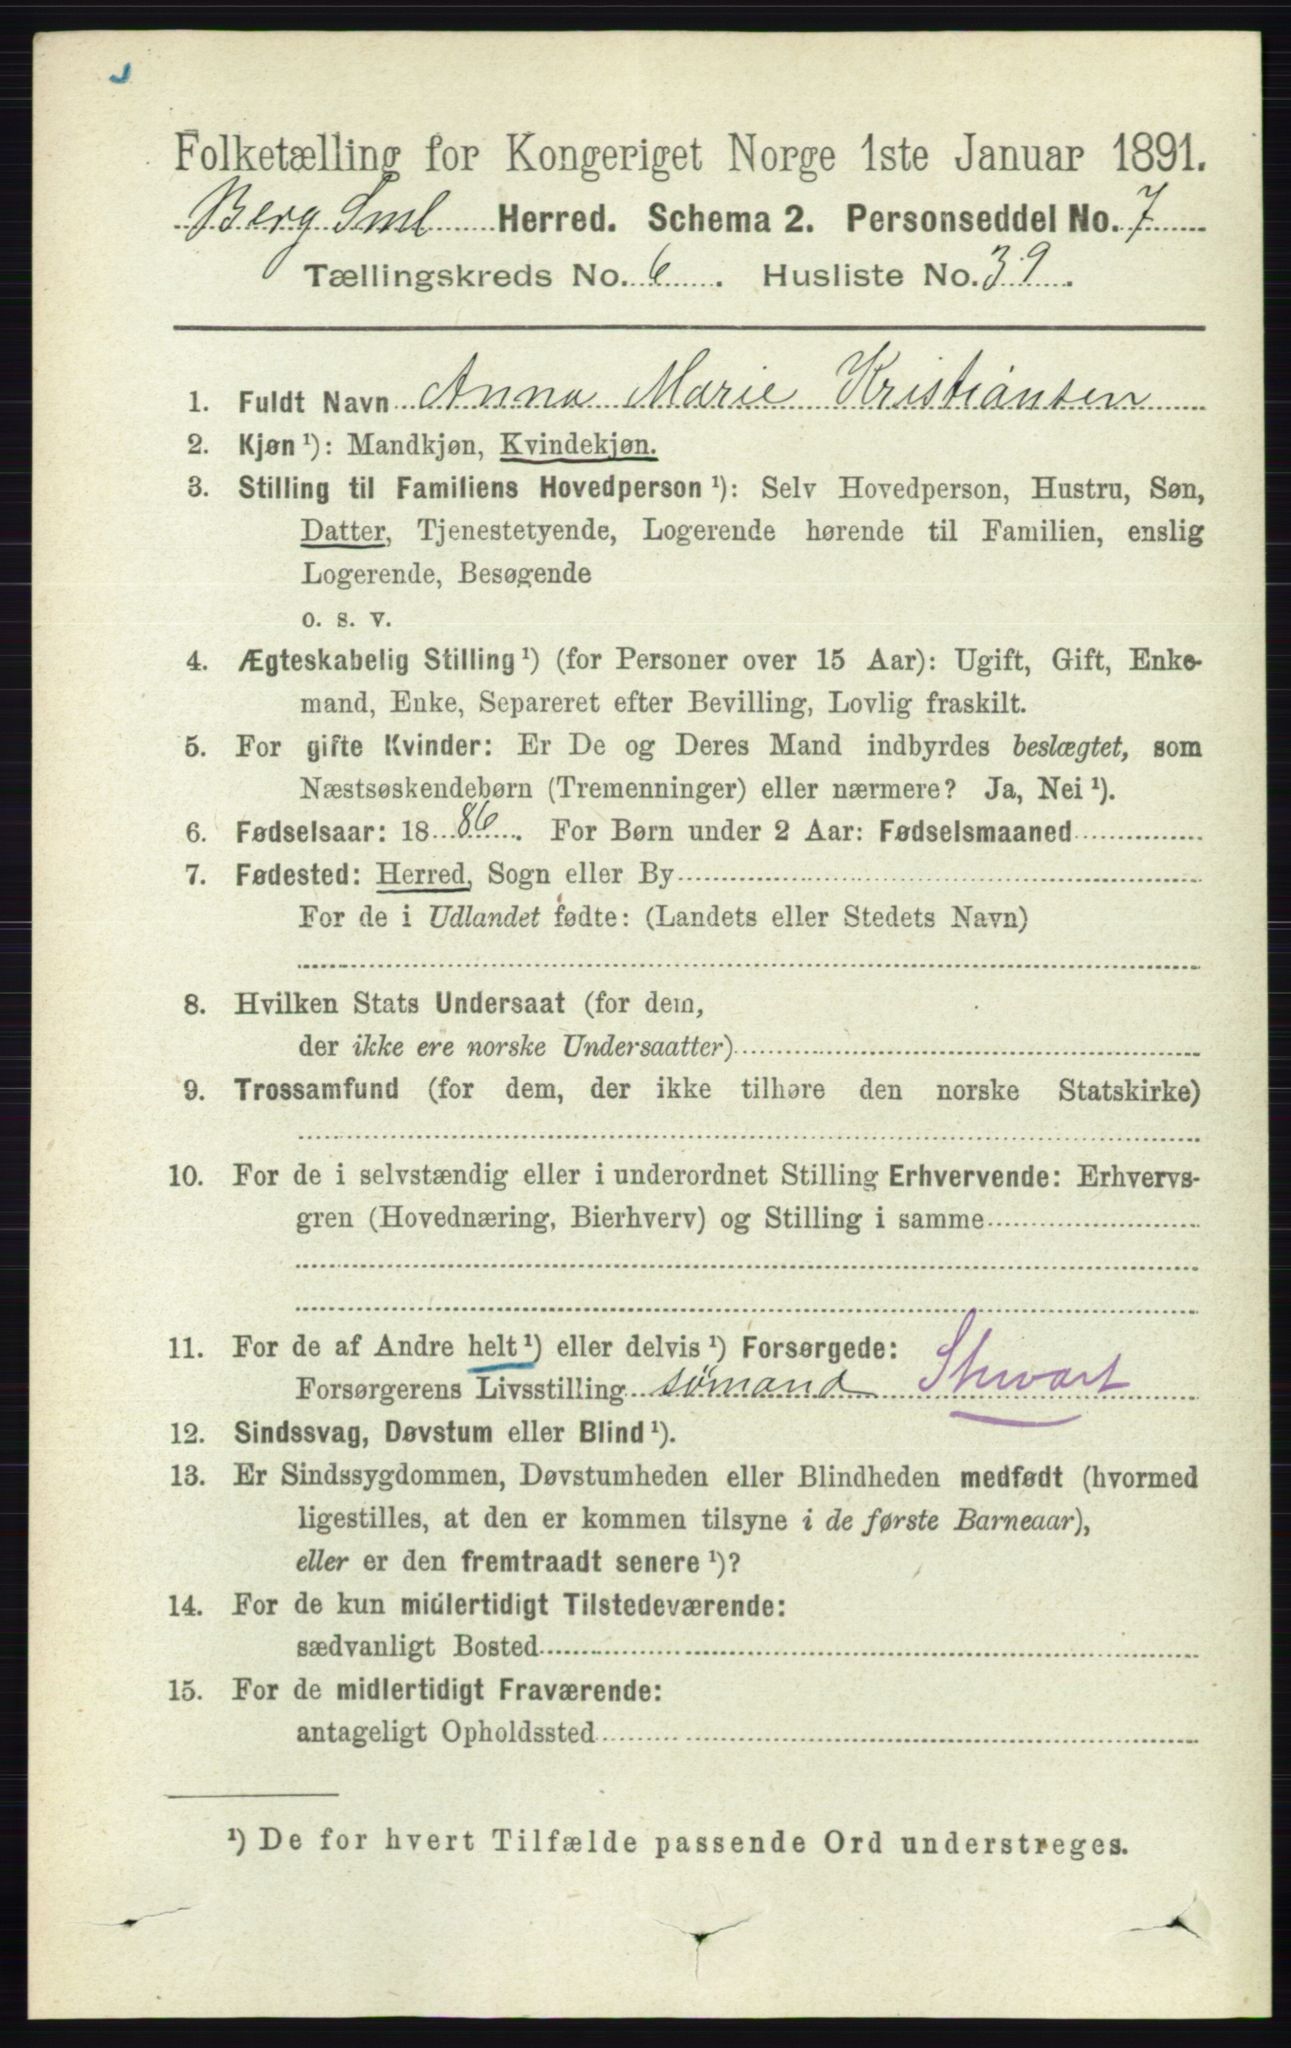 Folketælling for Kongeriget Norge 1ste Januar 1891.
Berg Sml Herred. Schema 2. Personseddel No. 7
Tællingskreds No. 6. Husliste No. 39.
1. Fuldt Navn Anna Marie Kristiansen
2. Kjøn ¹): Mandkjøn, Kvindekjøn.
3. Stilling til Familiens Hovedperson ¹): Selv Hovedperson, Hustru, Søn,
Datter, Tjenestetyende, Logerende hørende til Familien, enslig
Logerende, Besøgende
o. s. v.
4. Ægteskabelig Stilling ¹) (for Personer over 15 Aar): Ugift, Gift, Enke-
mand, Enke, Separeret efter Bevilling, Lovlig fraskilt.
5. For gifte Kvinder: Er De og Deres Mand indbyrdes beslægtet, som
Næstsøskendebørn (Tremenninger) eller nærmere? Ja, Nei ¹).
6. Fødselsaar: 1886. For Børn under 2 Aar: Fødselsmaaned
7. Fødested: Herred, Sogn eller By
For de i Udlandet fødte: (Landets eller Stedets Navn)
8. Hvilken Stats Undersaat (for dem,
der ikke ere norske Undersaatter)
9. Trossamfund (for dem, der ikke tilhøre den norske Statskirke)
10. For de i selvstændig eller i underordnet Stilling Erhvervende: Erhvervs-
gren (Hovednæring, Bierhverv) og Stilling i samme
11. For de af Andre helt ¹) eller delvis ¹) Forsørgede:
Forsørgerens Livsstilling sømand Stuvart
12. Sindssvag, Døvstum eller Blind ¹).
13. Er Sindssygdommen, Døvstumheden eller Blindheden medfødt (hvormed
ligestilles, at den er kommen tilsyne i de første Barneaar),
eller er den fremtraadt senere ¹)?
14. For de kun midlertidigt Tilstedeværende:
sædvanligt Bosted
15. For de midlertidigt Fraværende:
antageligt Opholdssted
¹) De for hvert Tilfælde passende Ord understreges.